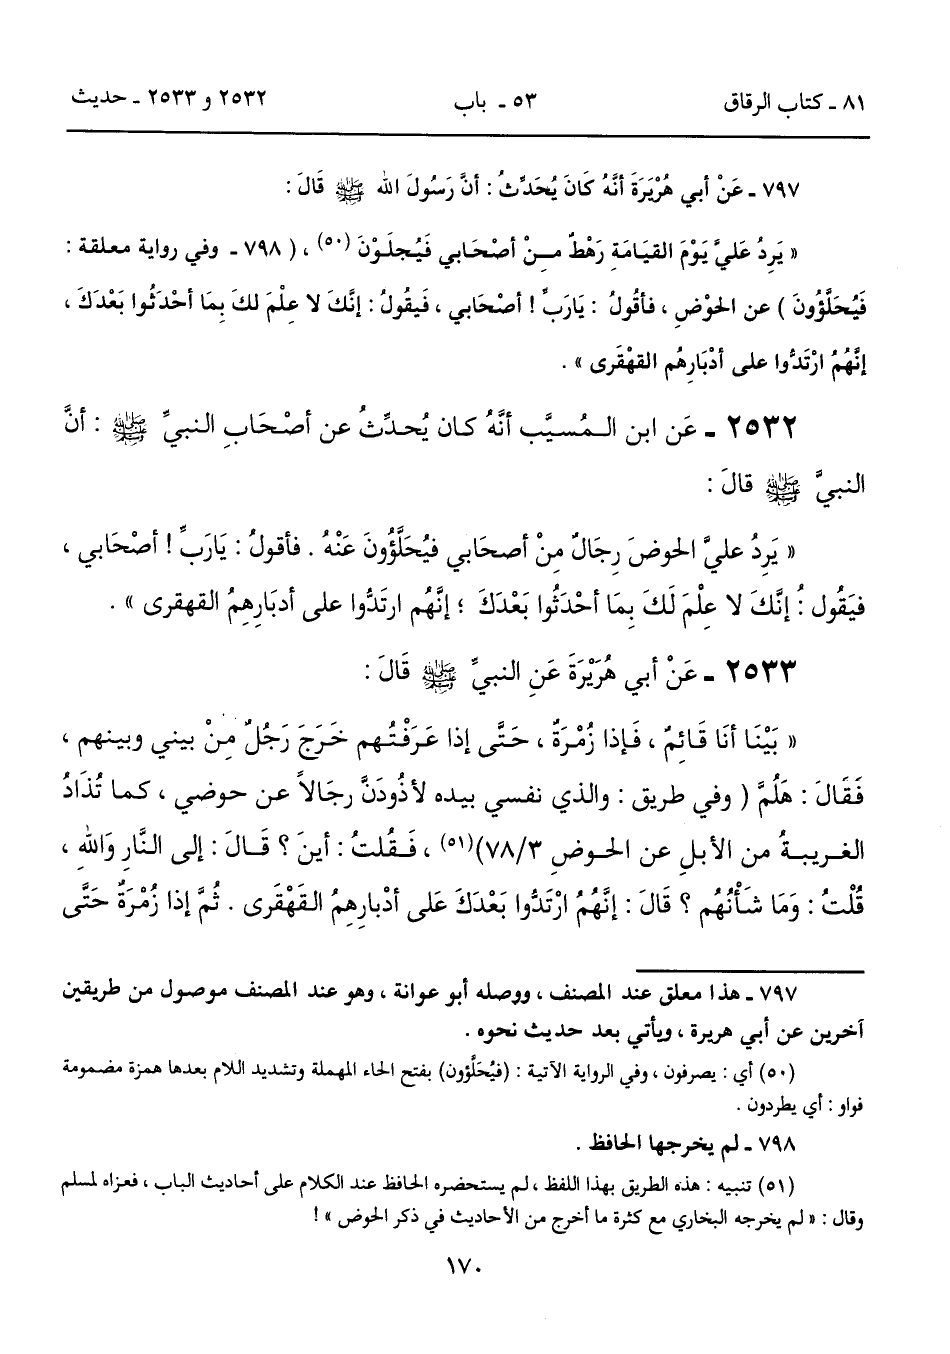 ٨١ ـ كتاب الرقاق ٥٣ ـ باب ٢٥٣٢ و ٢٥٣٣ ـ حديث
٧٩٧ ـ عَنْ أبي هُرَيْرَةَ أنَّهُ كَانَ يُحَدِّثُ : أنَّ رَسُولَ اللهِ ﷺ قَالَ :
« يَرِدُ عَلَيَّ يَوْمَ القيَامَةِ رَهْطٌ مِنْ أصْحَابي فَيُجلَوْنَ (٥٠) ، ( ٧٩٨ ـ وفي رواية معلقة :
فَيُحَلَّؤُونَ ) عن الحَوْضِ ، فأقُولُ : يَارَبِّ ! أصْحَابي ، فَيقُولُ : إنَّكَ لا عِلْمَ لكَ بِمَا أحْدَثُوا بَعْدَكَ ،
إنَّهُمُ ارْتَدُّوا على أدْبَارِهُم القهْقَرى » .
٢٥٣٢ ـ عَن ابن المُسيَّب أنَّهُ كان يُحدِّثُ عن أصْحَابِ النبيِّ ﷺ : أنَّ
النبيَّ ﷺ قالَ :
« يَرِدُ عليَّ الحوضَ رِجَالٌ مِنْ أصحَابي فيُحَلَّؤُونَ عَنْهُ . فأقولُ : يَارَبِّ ! أصْحَابي ،
فيَقُول : إنَّكَ لا عِلْمَ لَكَ بِمَا أحْدَثُوا بَعْدَكَ ؛ إنَّهُم ارتَدُّوا على أدبَارِهِمُ القهقرى » .
٢٥٣٣ ـ عَنْ أبي هُرَيْرَةَ عَنِ النبيِّ ﷺ قَالَ :
« بَيْنَا أنَا قَائِمٌ ، فَإذا زُمْرَةٌ ، حَتَّى إذا عَرَفْتُهم خَرَجَ رَجُلٌ مِنْ بيني وبينهم ،
فَقَالَ : هَلُمَّ ( وفي طريق : والذي نفسي بيده لأذُودَنَّ رجَالاً عن حوضي ، كما تُذَادُ
الغريبةُ من الأبلِ عن الحوضِ ٧٨/٣)(٥١) ، فَقُلتُ : أينَ ؟ قَالَ : إلى النَّارِ وَاللهِ ،
قُلْتُ : وَمَا شَأْنُهُم ؟ قالَ : إنَّهُمُ ارْتَدُّوا بَعْدَكَ عَلى أدْبارِهِمُ القَهْقَرى . ثُمَّ إذا زُمْرَةٌ حَتَّى
٧٩٧ ـ هذا معلق عند المصنف ، ووصله أبو عوانة ، وهو عند المصنف موصول من طريقين
آخرين عن أبي هريرة ، ويأتي بعد حديث نحوه .
(٥٠) أي : يصرفون ، وفي الرواية الآتية : (فيُحَلَّؤون) بفتح الحاء المهملة وتشديد اللام بعدها همزة مضمومة
فواو : أي يطردون .
٧٩٨ ـ لم يخرجها الحافظ .
(٥١) تنبيه : هذه الطريق بهذا اللفظ ، لم يستحضره الحافظ عند الكلام على أحاديث الباب ، فعزاه لمسلم
وقال : « لم يخرجه البخاري مع كثرة ما أخرج من الأحاديث في ذكر الحوض » !
١٧٠